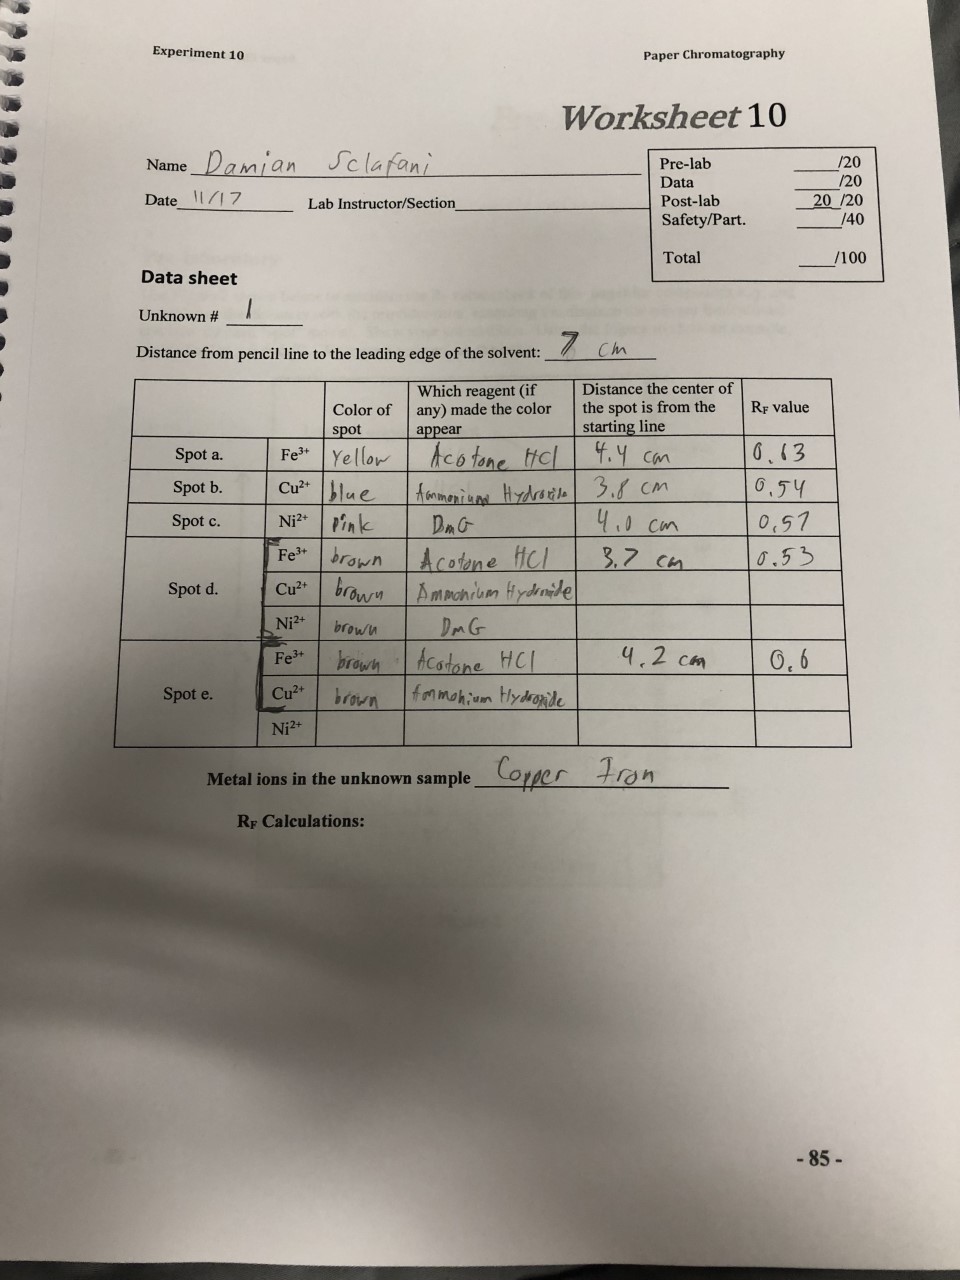 Experiment 10 Paper Chromatography
Worksheet 10
Name Damian Sclafani
Date 11/17 Lab Instructor/Section
Pre-lab /20
Data /20
Post-lab 20 /20
Safety/Part. /40
Total /100
Data sheet
Unknown # 1
Distance from pencil line to the leading edge of the solvent: 7 cm
Color of spot Which reagent (if any) made the color appear Distance the center of the spot is from the starting line RF value
Spot a. Fe3+ Yellow Acotone HCl 4.4 cm 0.63
Spot b. Cu2+ blue Ammonium Hydroxide 3.8 cm 0.54
Spot c. Ni2+ Pink DmG 4.0 cm 0.57
Spot d. Fe3+ brown Acotone HCl 3.7 cm 0.53
Cu2+ brown Ammonium Hydroxide
Ni2+ brown DmG
Spot e. Fe3+ brown Acotone HCl 4.2 cm 0.6
Cu2+ brown Ammonium Hydroxide
Ni2+
Metal ions in the unknown sample Copper Iron
RF Calculations:
- 85 -